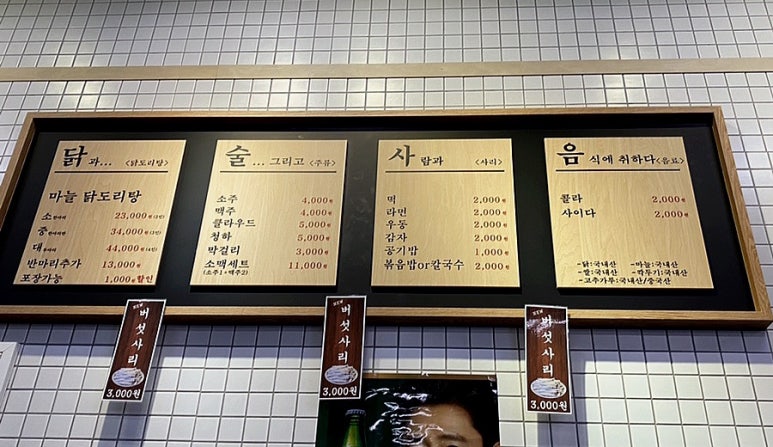 닭 과... <닭도리탕>
마늘 닭도리탕
소 23,000원
중 34,000원
대 44,000원
반마리추가 13,000원
포장가능 1,000원할인
술 ... 그리고 <주류>
소주 4,000원
맥주 4,000원
클라우드 5,000원
청하 5,000원
막걸리 3,000원
소맥세트 11,000원
(소주1+맥주2)
사 람과 <사리>
떡 2,000원
라면 2,000원
우동 2,000원
감자 2,000원
공기밥 1,000원
볶음밥or칼국수 2,000원
음 식에 취하다 <음료>
콜라 2,000원
사이다 2,000원
-닭:국내산 -마늘:국내산
-쌀:국내산 -깍두기:국내산
-고추가루:국내산/중국산
버섯사리
3,000원
버섯사리
3,000원
버섯사리
3,000원